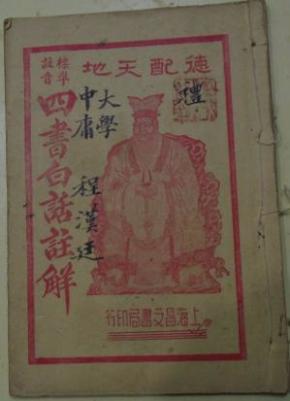 德配天地
標準
註音
四書白話註解
大學
中庸
程漢廷
禮
上海昌文書局印行